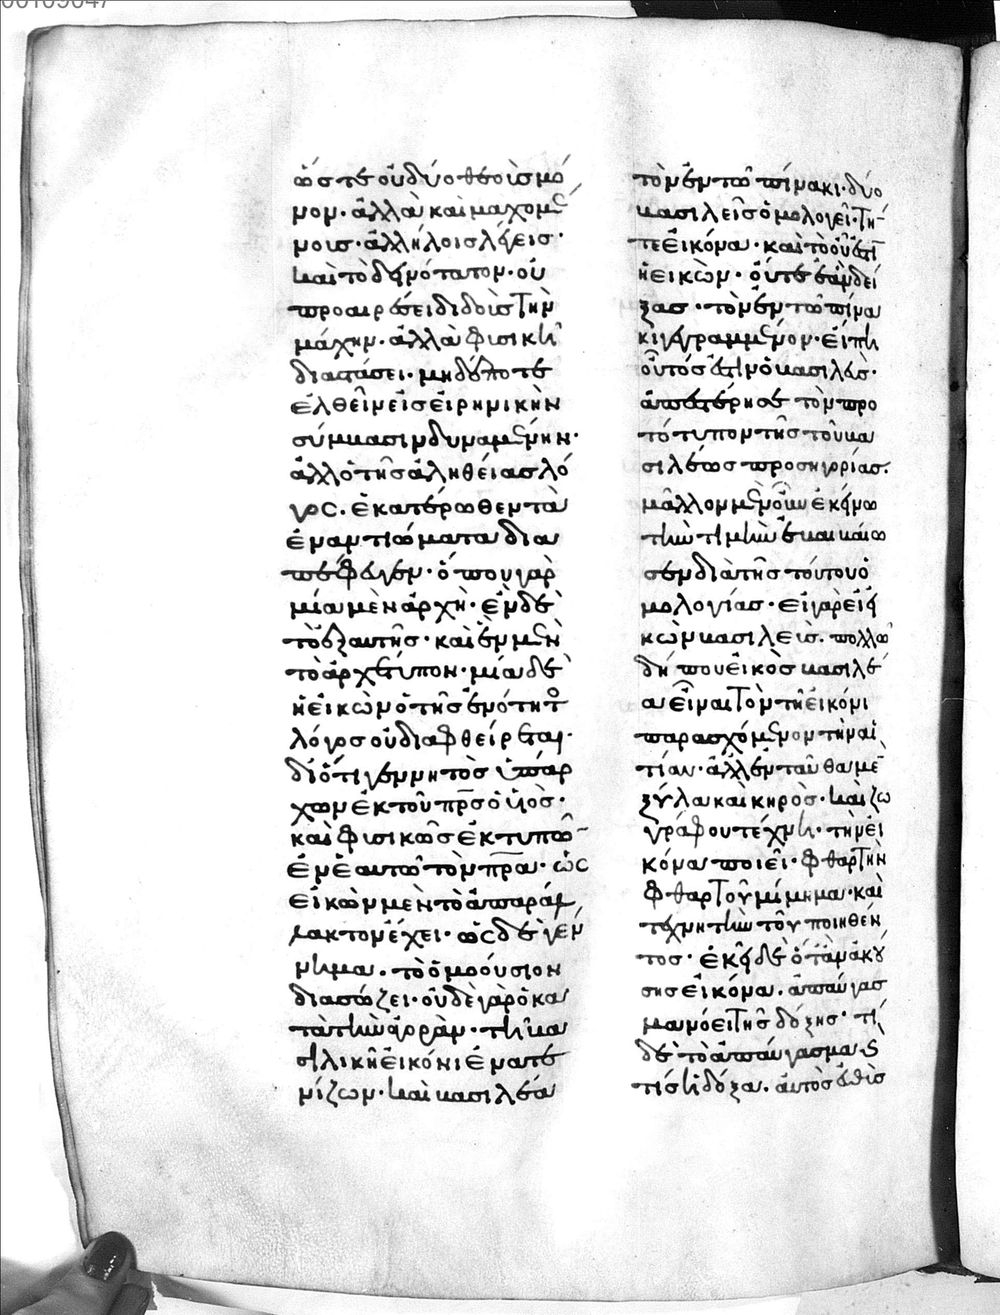 ὥστε οὐ δύο θεοὶς μό
νον· ἀλλὰ καὶ μαχομέ
νοις· ἀλλήλοις λέγεις·
καὶ τὸ δεινότατον· οὐ
προαιρέσει διδοὶς τὴν
μάχην· ἀλλὰ φυσικῆ
διαστάσει· μηδέποτε
ἐλθεῖν εἰς εἰρηνικὴν
σύμβασιν δυναμένην·
ἀλλ' ὁ τῆς ἀληθείας λό
γος. ἑκατέρωθεν τὰ
ἐναντιώματα δια
πέφευγεν· ὅπου γὰρ
μία μὲν ἀρχὴ· ἓν δὲ
τὸ ἐξ αυτῆς· καὶ ἓν μὲν
τὸ ἀρχέτυπον· μία δὲ
ἡ εἰκὼν ὁ τῆς ἑνότητος
λόγος οὐ διαφθείρεται·
διότι γεννητὸς ὑπάρ
χων ἐκ τοῦ πρς ὁ υἱὸς·
καὶ φυσικῶς ἐκτυπῶ
ἐν ἑαυτῶ τὸν πρα· ὡς
εἰκὼν μὲν τὸ ἀπαράλ
λακτον ἔχει· ὡς δὲ γέν
νημα. τὸ ὁμοούσιον
διασώζει· οὐδὲ γὰρ ὁ κα
τὰ τὴν ἀγορὰν· τῆ βα
σιλικῆ εἰκόνι ἐνατε
νίζων· καὶ βασιλέα
τὸν ἐν τῶ πίνακι· δύο
βασιλεῖς ὁμολογεῖ· τήν
τε εἰκόνα· καὶ τὸ οὗ ἐστὶ
ἡ εἰκὼν· οὔτε ἐὰν δεί
ξας· τὸν ἐν τῶ πίνα
κι γεγραμμένον· εἴπη
οὗτός ἐστὶν ὁ βασιλεύς·
ἀπεστέρησε τὸν πρω
τότυπον τῆς τοῦ βα
σιλέως προσηγορίας.
μᾶλλον μὲν οὖν ἐκείνω
τὴν τιμὴν ἐβεβαίω
σεν διὰ τῆς τούτου ὁ
μολογίας· εἰ γὰρ εἰ
κὼν βασιλεὺς. πολλῶ
δή που εἰκὸς βασιλέ
α εἶναι τὸν τῆ εἰκόνι
παρασχόμενον τὴν αἰ
τίαν· ἀλλ' ἐνταῦθα μὲν
ξύλα καὶ κηρὸς· καὶ ζω
γράφου τέχνη· τὴν εἰ
κόνα ποιεῖ· φθαρτὴν
φθαρτοῦ μίμημα· καὶ
τεχνητὴν τοῦ ποιηθέν
τος· ἐκεῖ δὲ ὅταν ἀκού
σης εἰκόνα. ἀπαύγασ
μα νόει τῆς δόξης· τί
δὲ τὸ ἀπαύγασμα· καὶ
τίς ἡ δόξα. αὐτὸς εὐθὺς